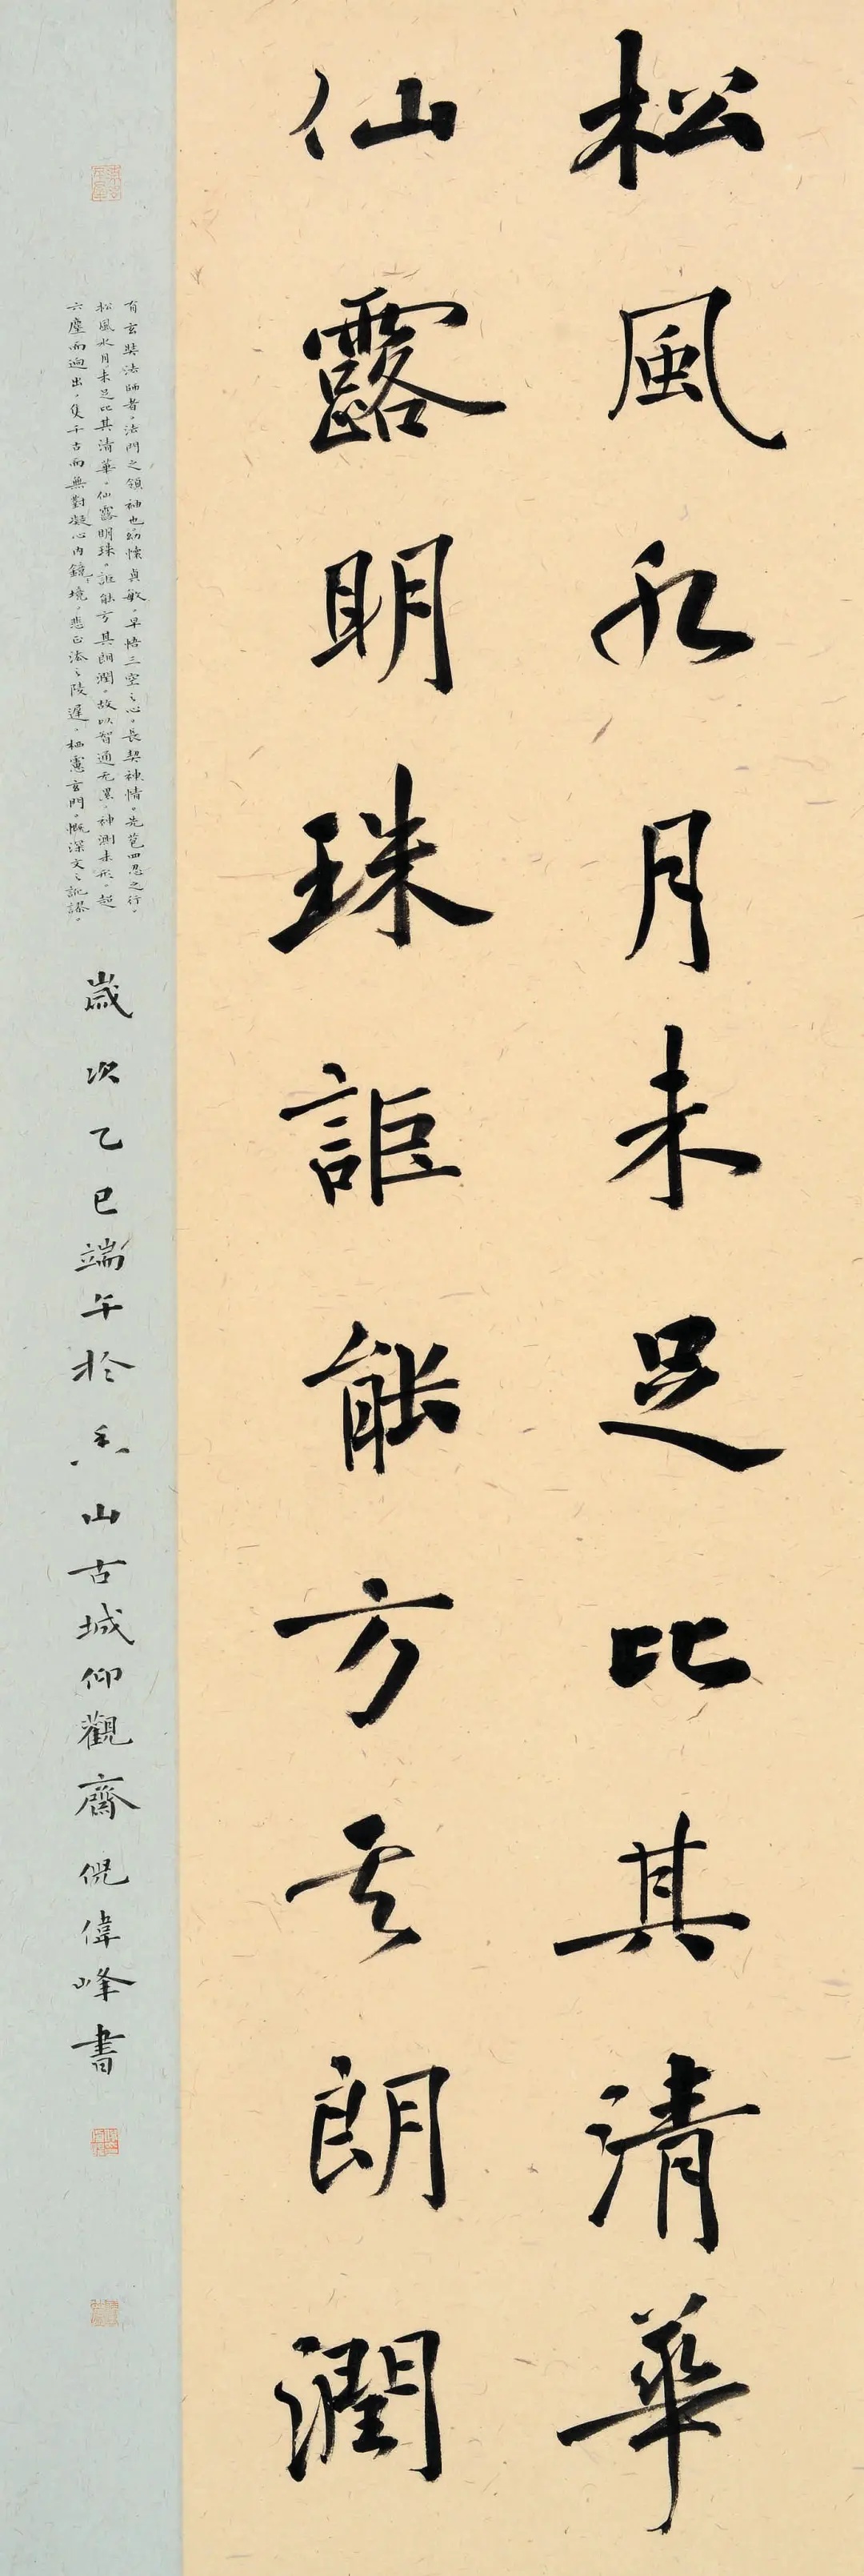 松風水月未足比其清華
仙露明珠詎能方其朗潤
有玄奘法師者。法門之領袖也。幼懷貞敏。早悟三空之心。長契神情。先苞四忍之行。
松風水月未足比其清華。仙露明珠。詎能方其朗潤。故以智通无累。神測未形。超
六塵而迥出。隻千古而無對。凝心內境。悲正法之陵遲。栖慮玄門。慨深文之訛謬。
歲次乙巳端午於香山古城仰觀齋倪偉峰書